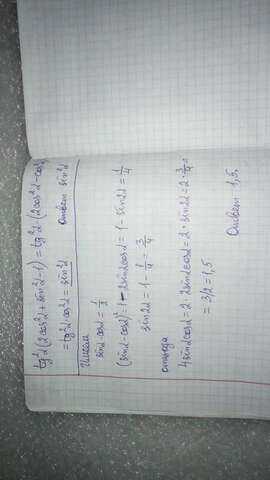 tg²α(2cos²α+sin²α-1) = tg²α·(2cos²α-cos
= tg²α cos²α = sin²α Ответ sin²α
Имеем
sinα-cosα = 1/2
(sinα-cosα)² = 1-2sinαcosα = 1-sin2α = 1/4
sin2α = 1-1/4 = 3/4
откуда
4sinαcosα = 2·2sinαcosα = 2·sin2α = 2·3/4 =
= 3/2 = 1,5
Ответ 1,5.